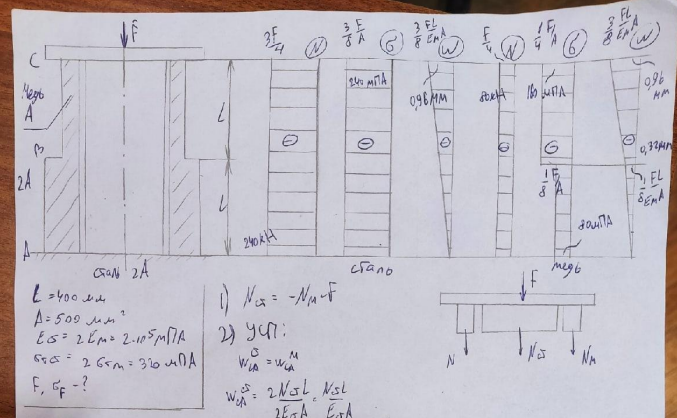 F
C
Медь
A
B
2A
A
сталь 2A
L
L
3F/4
N
3/8 F/A
σ
3/8 FL/EмA
W
F/4
N
1/4 F/A
σ
3/8 FL/EмA
W
240 мПА
0,96 мм
80кН
160 мПА
0,96 мм
0,32мм
1/8 F/A
1/8 FL/EмA
240кН
80мПА
сталь
медь
L = 400 мм
A = 500 мм²
Eст = 2Eм = 2·10⁵мПА
σтст = 2σтм = 320 мПА
F, σF - ?
1) Nст = -Nм - F
2) УСП:
WCAст = WCAм
WCAст = 2NстL/2EстA = NстL/EстA
F
N
Nст
Nм